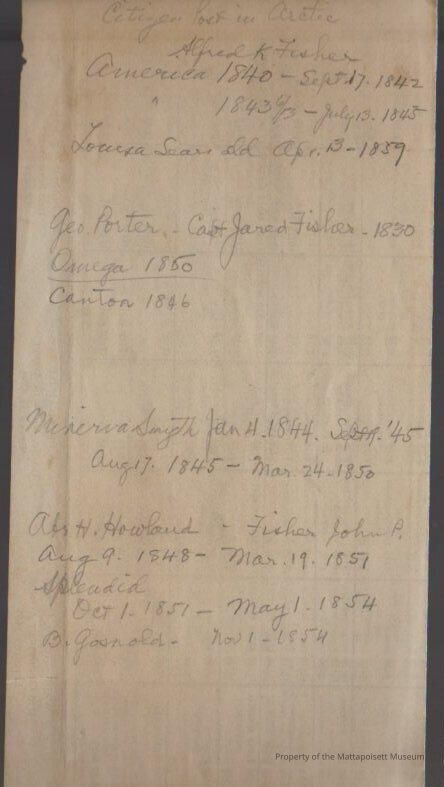 Citizen Lost in Arctic
Alfred K Fisher
America 1840 - Sept 17. 1842
" 1843 - July 13. 1845
Louisa Sears old Apr. 13 - 1859
Geo. Porter - Capt Jared Fisher - 1830
Omega 1850
Canton 1846
Minerva Smyth Jan 4. 1844. Sept. '45
Aug 17. 1845 - Mar. 24 - 1850
Abr H. Howland - Fisher John P.
Aug 9. 1848 - Mar. 19. 1851
Splendid
Oct 1. 1851 - May 1. 1854
B. Gosnold - Nov 1 - 1854
Property of the Mattapoisett Museum